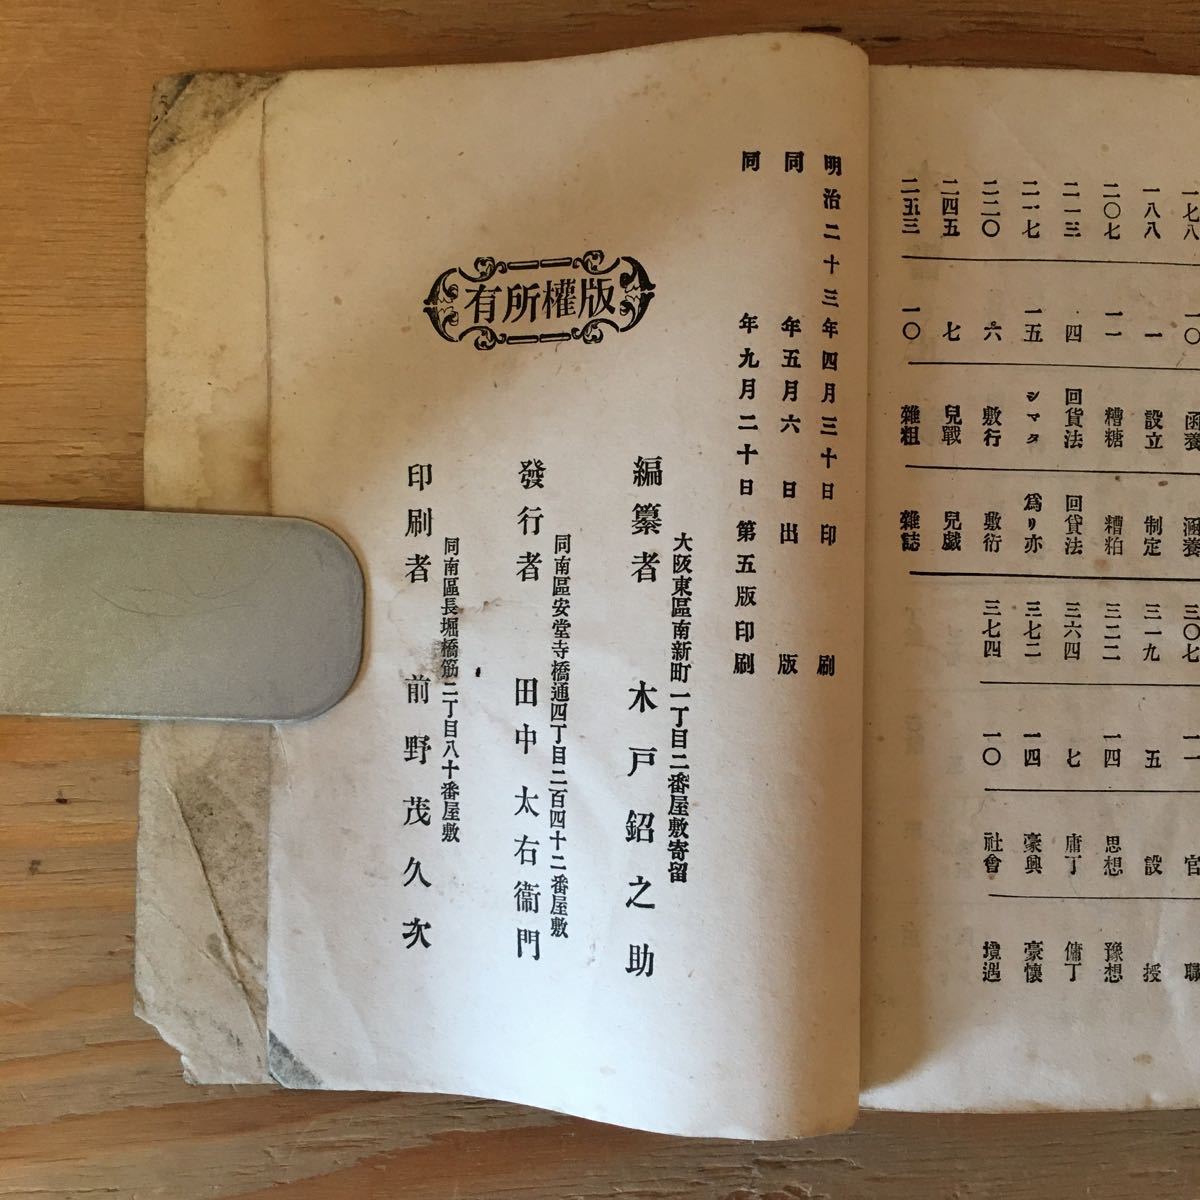 一七八 一〇 涵養 涵養 三〇七 一一 官 職
一八八 一 設立 制定 三一九 五 設 授
二〇七 一一 糟糖 糟粕 三二二 一四 思想 豫想
二一三 四 回貨法 回貸法 三六四 七 庸丁 傭丁
二一七 一五 シマタ 爲リ亦 三七二 一四 豪興 豪懷
二二〇 六 敷行 敷衍 三七四 一〇 社會 境遇
二四五 七 兒戰 兒戯
二五三 一〇 雜粗 雜誌
明治二十三年四月三十日印刷
同年五月六日出版
同年九月二十日第五版印刷
版權所有
大阪東區南新町一丁目二番屋敷寄留
編纂者 木戸鉊之助
同南區安堂寺橋通四丁目二百四十二番屋敷
發行者 田中太右衞門
同南區長堀橋筋二丁目八十番屋敷
印刷者 前野茂久次